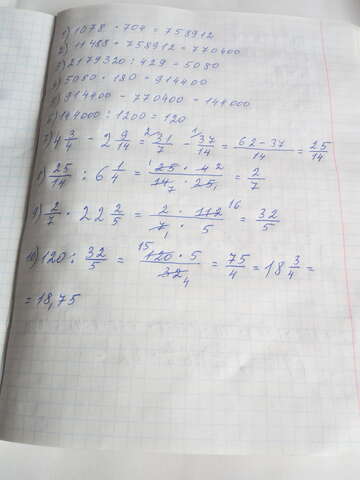 1) 1078 · 704 = 758912
2) 11488 + 758912 = 770400
3) 2179320 : 429 = 5080
4) 5080 · 180 = 914400
5) 914400 - 770400 = 144000
6) 144000 : 1200 = 120
7) 4 3/4 - 2 9/14 = 31/7 - 37/14 = 62-37/14 = 25/14
8) 25/14 : 6 1/4 = 25 · 4/14 · 25 = 2/7
9) 2/7 · 22 2/5 = 2 · 112/7 · 5 = 32/5
10) 120 : 32/5 = 120 · 5/32 = 75/4 = 18 3/4 =
= 18,75